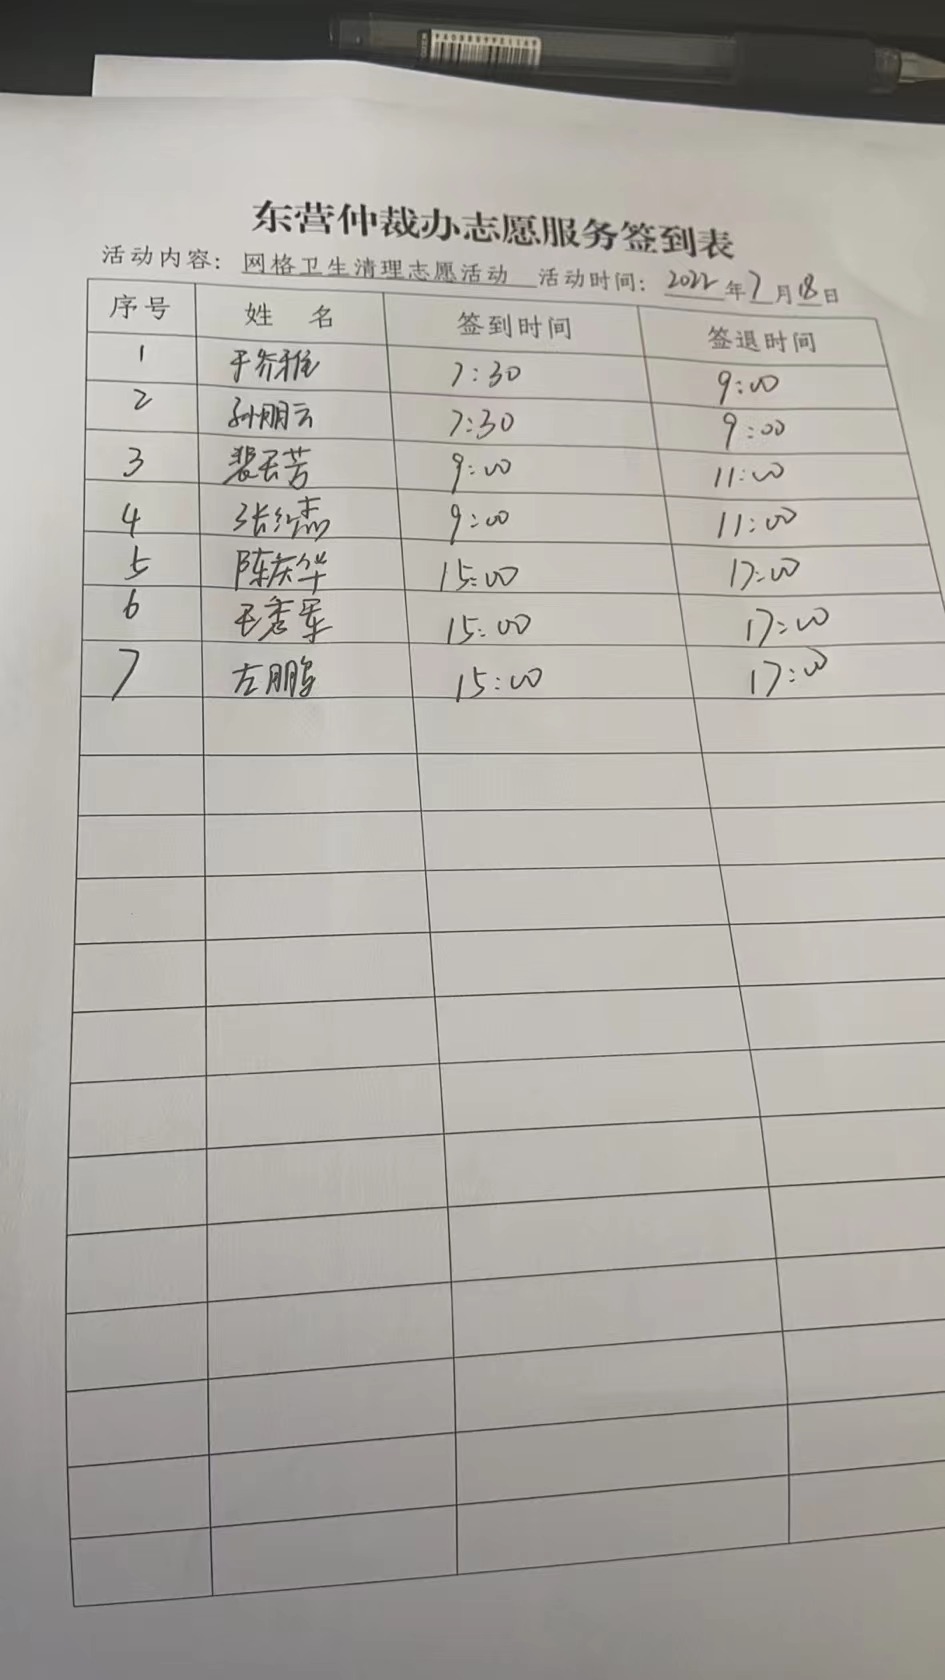 东营仲裁办志愿服务签到表
活动内容：网格卫生清理志愿活动 活动时间：2022年7月18日
序号 姓 名 签到时间 签退时间
1 于乔雅 7:30 9:00
2 孙朋云 7:30 9:00
3 裴玉芳 9:00 11:00
4 张红杰 9:00 11:00
5 陈庆华 15:00 17:00
6 王秀军 15:00 17:00
7 左鹏 15:00 17:00